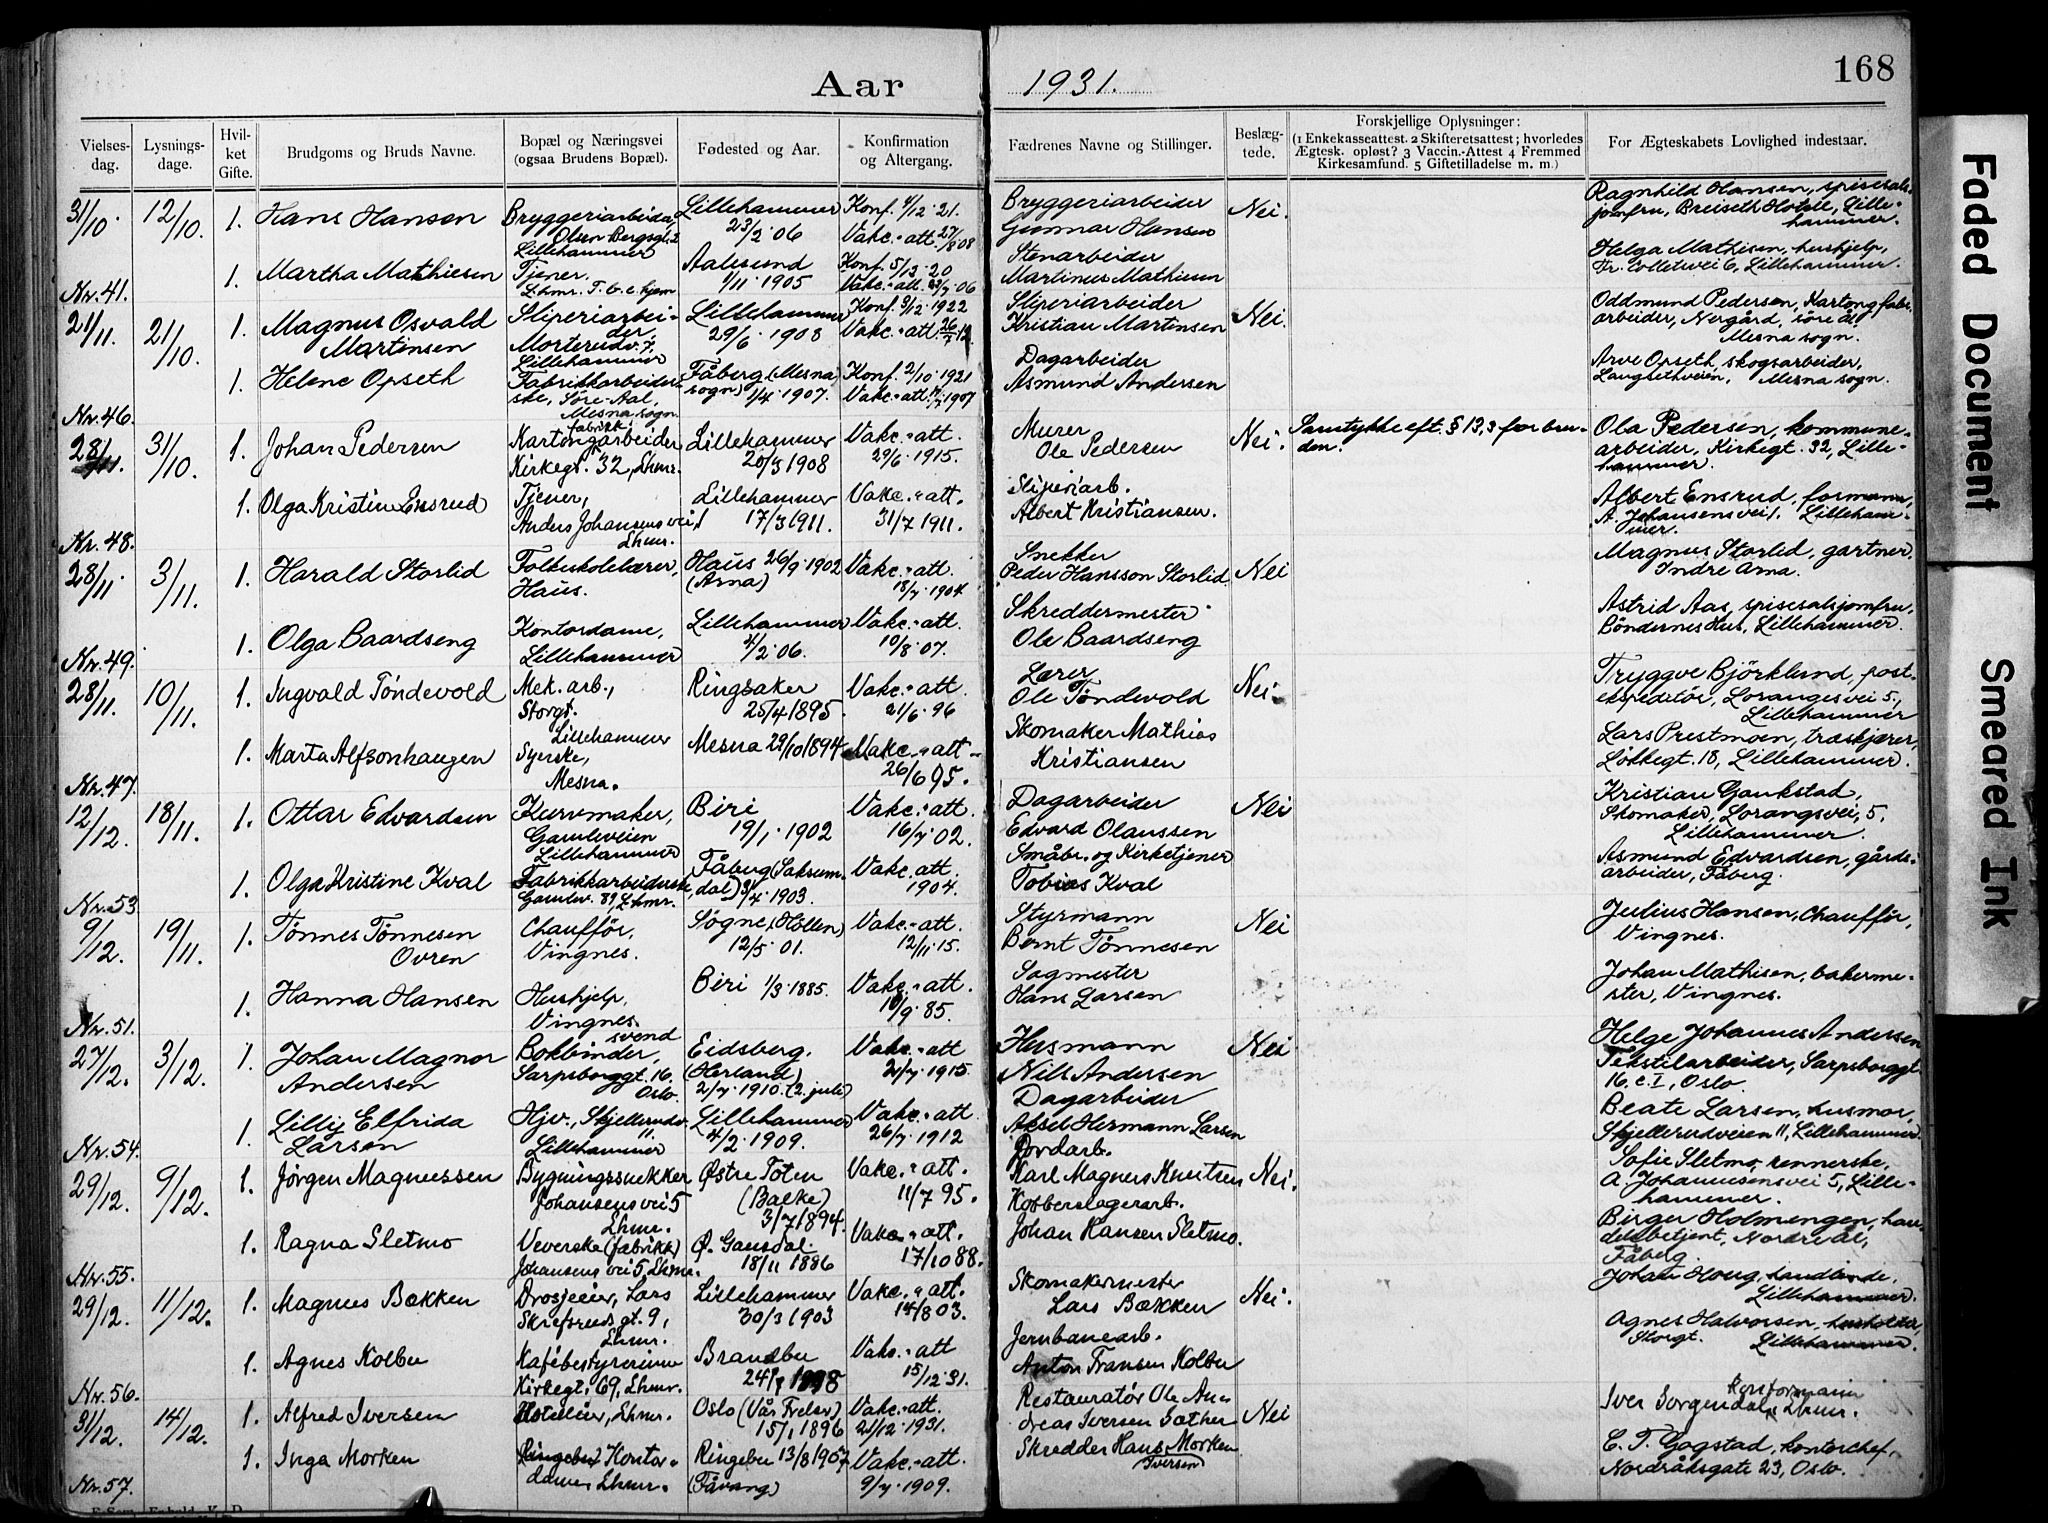 Aar 1931. 168
Vielses-dag. Lysnings-dage. Hvil-ket Gifte. Brudgoms og Bruds Navne. Bopæl og Næringsvei (ogsaa Brudens Bopæl). Fødested og Aar. Konfirmation og Altergang. Fædrenes Navne og Stillinger. Beslæg-tede. Forskjellige Oplysninger: (1 Enkekasseattest. 2 Skifteretsattest; hvorledes Ægtesk. opløst? 3 Vaccin.-Attest 4 Fremmed Kirkesamfund. 5 Giftetilladelse m. m.) For Ægteskabets Lovlighed indestaar.
31/10. 12/10. 1. Hans Hansen
Bryggeriarbeider
Olsen Bergsgt. 2
Lillehammer
Lillehammer
23/2 06
Konf. 4/12 21.
Vakc.-att. 27/8 08
Bryggeriarbeider
Gunnar Hansen
Nei.
Ragnhild Hansen, spisesals-
jomfru, Breiseth Hotell, Lille-
hammer.
Nr. 41. 1. Martha Mathiesen
Tjener.
Lhmr. T.b.c. hjem
Aalesund
1/11 1905
Stenarbeider
Martinus Mathisen
Helga Mathisen, hushjelp,
Fr. Colletsvei 6, Lillehammer.
21/11. 21/10. 1. Magnus Osvald
Martinsen
Sliperiarbei-
der
Morterudv. 7.
Lillehammer
Lillehammer
29/6 1908
Konf. 3/12 1922
Vakc.-att.
Sliperiarbeider
Kristian Martinsen
Nei.
Oddmund Pedersen, Kartongfabr.
arbeider, Nergård, søre ål
Mesna sogn.
Nr. 46. 1. Helene Opseth
Fabrikkarbeider-
ske, Søre-Aal,
Mesna sogn.
Fåberg (Mesna
sogn) 1/4 1907.
Konf. 2/10 1921
Vakc.-att. 1907
Dagarbeider
Asmund Andersen
Arve Opseth, skogsarbeider,
Langsethveien, Mesna sogn.
28/11. 31/10. 1. Johan Pedersen
fabrikk
Kartongarbeider
Kirkegt. 32, Lhmr.
Lillehammer
20/3 1908
Vakc.-att.
29/6 1915.
Murer
Ole Pedersen
Nei.
Samtykke eft. § 13,3 for bru-
den.
Ola Pedersen, kommune-
arbeider, Kirkegt. 32, Lille-
hammer.
Nr. 48. 1. Olga Kristine Ensrud
Tjener,
Anders Johansens vei 1
Lhmr.
Lillehammer
17/3 1911.
Vakc.-att.
31/7 1911.
Sliperiarb.
Albert Kristiansen.
Albert Ensrud, formann,
A. Johansensvei 1. Lilleham-
mer.
28/11. 3/11. 1. Harald Storlid
Folkeskolelærer,
Haus.
Haus 26/9 1902
(Arna)
Vakc.-att.
18/7 1904
Snekker
Peder Hansson Storlid
Nei
Magnus Storlid, gartner,
Indre Arna.
Nr. 49. 1. Olga Baardseng
Kontordame,
Lillehammer
Lillehammer
4/2 06.
Vakc.-att.
10/8 07.
Skreddermester
Ole Baardseng
Astrid Aas, spisesalsjomfru,
Bøndernes Hus, Lillehammer.
28/11. 10/11. 1. Ingvald Tøndevold
Mek. arb.,
Storgt.
Lillehammer
Ringsaker
25/4 1895.
Vakc.-att
21/6 96
Lærer
Ole Tøndevold
Nei.
Tryggve Björklund, post-
ekspeditør, Lorangesvei 5,
Lillehammer
Nr. 47. 1. Marta Alfsonhaugen
Syerske,
Mesna.
Mesna 29/10 1894
Vakc.-att.
26/6 95.
Skomaker Mathias
Kristiansen
Lars Prestmoen, træskjærer,
Løkkegt. 18, Lillehammer.
12/12. 18/11. 1. Ottar Edvardsen
Kurvmaker,
Gamleveien
Lillehammer
Biri
19/1 1902
Vakc.-att.
16/7 02.
Dagarbeider
Edvard Olaussen
Nei
Kristian Gaukstad,
Skomaker, Lorangsvei, 5,
Lillehammer.
Nr. 53 1. Olga Kristine Kval
Fabrikkarbeiderske,
Gamlev. 89, Lhmr.
Fåberg (Saksum-
dal) 1903.
Vakc. att.
1904.
Småbr. og Kirketjener
Tobias Kval
Asmund Edvardsen, gårds-
arbeider, Fåberg.
9/12. 19/11. 1. Tønnes Tønnesen
Ovren
Chauffør,
Vingnes.
Søgne (Høllen)
12/5 01.
Vakc.-att.
12/11 15.
Styrmann
Bernt Tønnesen
Nei
Julius Hansen, Chauffør,
Vingnes.
Nr. 51. 1. Hanna Hansen
Hushjelp,
Vingnes.
Biri 1/3 1885.
Vakc.-att.
10/9 85.
Sagmester
Hans Larsen
Johan Mathisen, bakerme-
ster, Vingnes.
27/12. 3/12. 1. Johan Magnor
Andersen
svend
Bokbinder,
Sarpsborggt. 16.
Oslo.
Eidsberg.
(Herland)
2/7 1910. (2. juli)
Vakc.-att
21/7 1915.
Husmann
Nils Andersen
Nei
Helge Johannes Andersen
Tekstilarbeider, Sarpsborggt.
16. c. I, Oslo.
Nr. 54. 1. Lilly Elfrida
Larsen
Hjv., Skjellerudv.
11.
Lillehammer
Lillehammer
4/2 1909.
Vakc.-att.
26/7 1912
Dagarbeider
Aksel Hermann Larsen
Beate Larsen, husmor,
Skjellerudveien 11, Lillehammer.
29/12. 9/12. 1. Jørgen Magnussen
Bygningssnekker
Johansens vei 5
Lhmr.
Østre Toten
(Balke)
3/7 1894.
Vakc.-att.
11/7 95.
Jordarb.
Karl Magnus Knutsen
Nei.
Sofie Sletmo, rennerske,
A. Johannesensvei 5, Lille-
hammer.
Nr. 55. 1. Ragna Sletmo
Veverske (fabrikk)
Johansens vei 5, Lhmr.
Ø. Gausdal.
18/11 1886
Vakc.-att.
17/10 88.
Kobberslagerarb.
Johan Hansen Sletmo.
Birger Holmengen, han-
delsbetjent, Nordre ål,
Fåberg.
29/12. 11/12. 1. Magnus Bækken
Drosjeeier, Lars
Skrefsruds gt. 9,
Lhmr.
Lillehammer
30/3 1903
Vakc.-att.
14/8 03.
Skomakermester
Lars Bækken
Nei.
Johan Houg, handlende.
Lillehammer.
Nr. 56. 1. Agnes Kolbu
Kafébestyrerinne
Kirkegt. 69, Lhmr.
Brandbu
Vaks.-att
15/12 31.
Jernbanearb.
Anton Fransen Kolbu
Agnes Halvorsen,
Storgt. Lillehammer.
31/12. 14/12. 1. Alfred Iversen
Hotelleier, Lhmr.
Oslo (Vår Frelser)
15/1 1896
Vakc.-att.
21/12 1931.
Restauratør Ole An-
dreas Iversen Sæther
Nei
Iver Sorgendal, Lhmr.
Nr. 57. 1. Inga Morken
Ringebu) Kontor-
dame, Lhmr.
Ringebu 13/8 1907
(Fåvang)
Vakc.-att.
9/7 1909.
Skredder Hans Morken
Iversen
C. T. Gogstad, kontorchef,
Nordråksgate 23, Oslo.
Faded Document
Smeared Ink